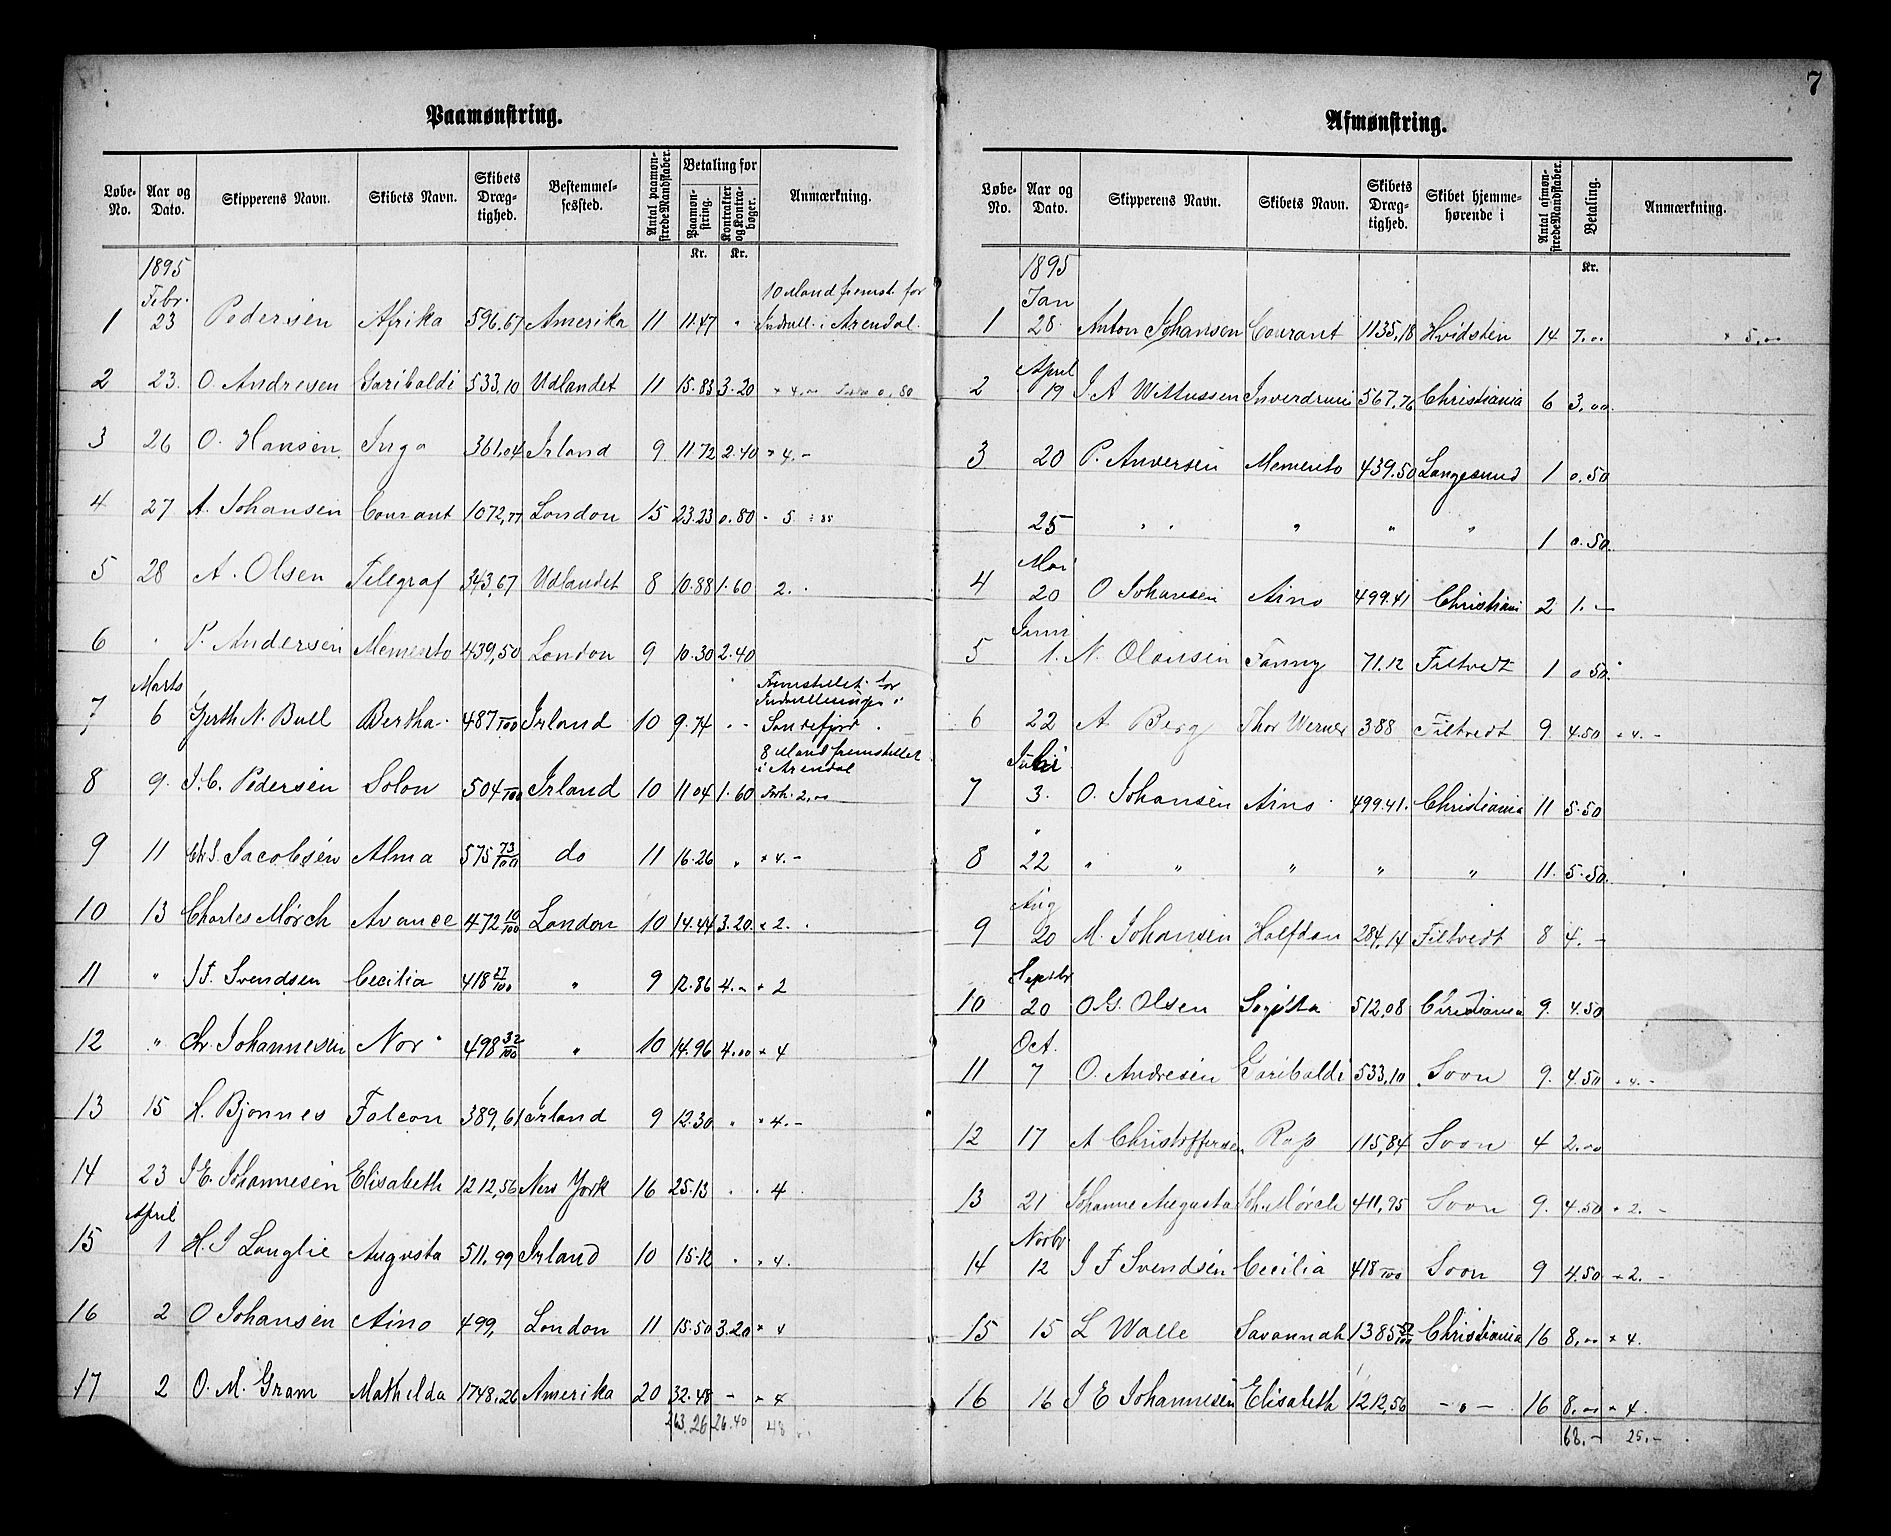 7
Paamønstring.
Løbe-No. | Aar og Dato. | Skipperens Navn. | Skibets Navn. | Skibets Dræg-tighed. | Bestemmel-sessted. | Antal paamøn-strede Mandskaber. | Betaling for Paamøn-string. Kr. | Kontrakter og Kontra-bøger. Kr. | Anmærkning.
1895
Febr.
10 Mand fremst. for
1 | 23 | Pedersen | Afrika | 596.67 | Amerika | 11 | 11.47 | " | Indrull. i Arendal.
2 | 23. | O. Andresen | Garibaldi | 533,10 | Udlandet | 11 | 15.83 | 3.20 | " 4,00 0,80
3 | 26 | O. Hansen | Inga | 361,04 | Irland | 9 | 11 72 | 2.40 | " 4.-
4 | 27 | A. Johansen | Courant | 1072,77 | London | 15 | 23.23 | 0.80 | " 5
5 | 28 | A. Olsen | Telegraf | 343,67 | Udlandet | 8 | 10.88 | 1.60 | 2.
6 | " | P. Andersen | Memento | 439,50 | London | 9 | 10.30 | 2.40
Marts
Fremstillet for
Indrulleringen i
7 | 6 | Gjerth N. Bull | Bertha | 487 /100 | Irland | 10 | 9.74 | " - | Sandefjord.
8 Mand fremstillet
i Arendal
8 | 9. | J. C. Pedersen | Solon | 504 /100 | Irland | 10 | 11 04 | 1.60 | Forh. 2,00
9 | 11 | Chr. J. Jacobsen | Alma | 575 73/100 | do | 11 | 16.26 | " | " 4.-
10 | 13 | Charles Mørch | Avance | 472 10/100 | London | 10 | 14.44 | 3.20 | " 2.
11 | " | J F. Svendsen | Cecilia | 418 27/100 | " | 9 | 12.86 | 4.- | " 2
12 | " | Chr. Johannesen | Nor | 498 32/100 | " | 10 | 14.96 | 4.00 | " 4
13 | 15 | H. Bjonnes | Falcon | 389,61 | Irland | 9 | 12.30 | " | " 4.-
14 | 23 | J E. Johannesen | Elisabeth | 1212,56 | New York | 16 | 25.13 | " | " 4
April
15 | 1 | H. J Langlie | Augusta | 511,99 | Irland | 10 | 15.12 | " | " 4.
16 | 2 | O Johansen | Aino | 499, | London | 11 | 15.50 | 3.20 | " 4
17 | 2 | O. M. Gram | Mathilda | 1748,26 | Amerika | 20 | 32.48 | - | " 4
263.26 | 26.40 | 48
Afmønstring.
Løbe-No. | Aar og Dato. | Skipperens Navn. | Skibets Navn. | Skibets Dræg-tighed. | Skibet hjemme-hørende i | Antal afmøn-strede Mandskaber. | Betaling. Kr. | Anmærkning.
1895
Jan
1 | 28. | Anton Johansen | Courant | 1135,18 | Hvidsten | 14 | 7.00 | " 5,00
April
2 | 19 | J A Wittussen | Inverdruie | 567,76 | Christiania | 6 | 3,00
3 | 20 | P. Andersen | Memento | 439.50 | Langesund | 1 | 0.50
25 | " " | " | " | " | 1 | 0.50
Mai
4 | 20 | O Johansen | Aino | 499.41 | Christiani | 2 | 1.-
Juni
5 | 1. | N. Olausen | Fanny | 71.12 | Filtvedt | 1 | 0 50
6 | 22 | A Berg | Thor Werner | 388 | Filtvedt | 9 | 4.50 | " 4.-
Juli
7 | 3. | O. Johansen | Aino | 499.41. | Christiania | 11 | 5.50
"
8 | 22 | " " | " | " | " | 11. | 5.50
Aug
9 | 20 | M. Johansen | Halfdan | 284,14 | Filtvedt | 8 | 4.-
Septbr
10 | 20 | O G. Olsen | | 512,08 | Christiania | 9. | 4.50
Oct.
11 | 7 | O. Andresen | Garibaldi | 533,10 | Soon | 9. | 4.50 | " 4.-
12 | 17 | A Christoffersen | Rap | 115,84 | Soon | 4 | 2.00
13 | 21 | Johanne Augusta | Joh. Mørch | 411,95 | Soon | 9. | 4.50 | " 2. -
Novbr
14 | 12 | J F Svendsen | Cecilia | 418 /100 | Soon | 9 | 4.50 | " 2. -
15 | 15 | L Walle | Savannah | 1385 /100 | Christiania | 16 | 8,00 | " 4.
16 | 16 | J E Johannesen | Elisabeth | 1212,56 | - " - | 16 | 8,00 | " 4.
68.- | 25.-